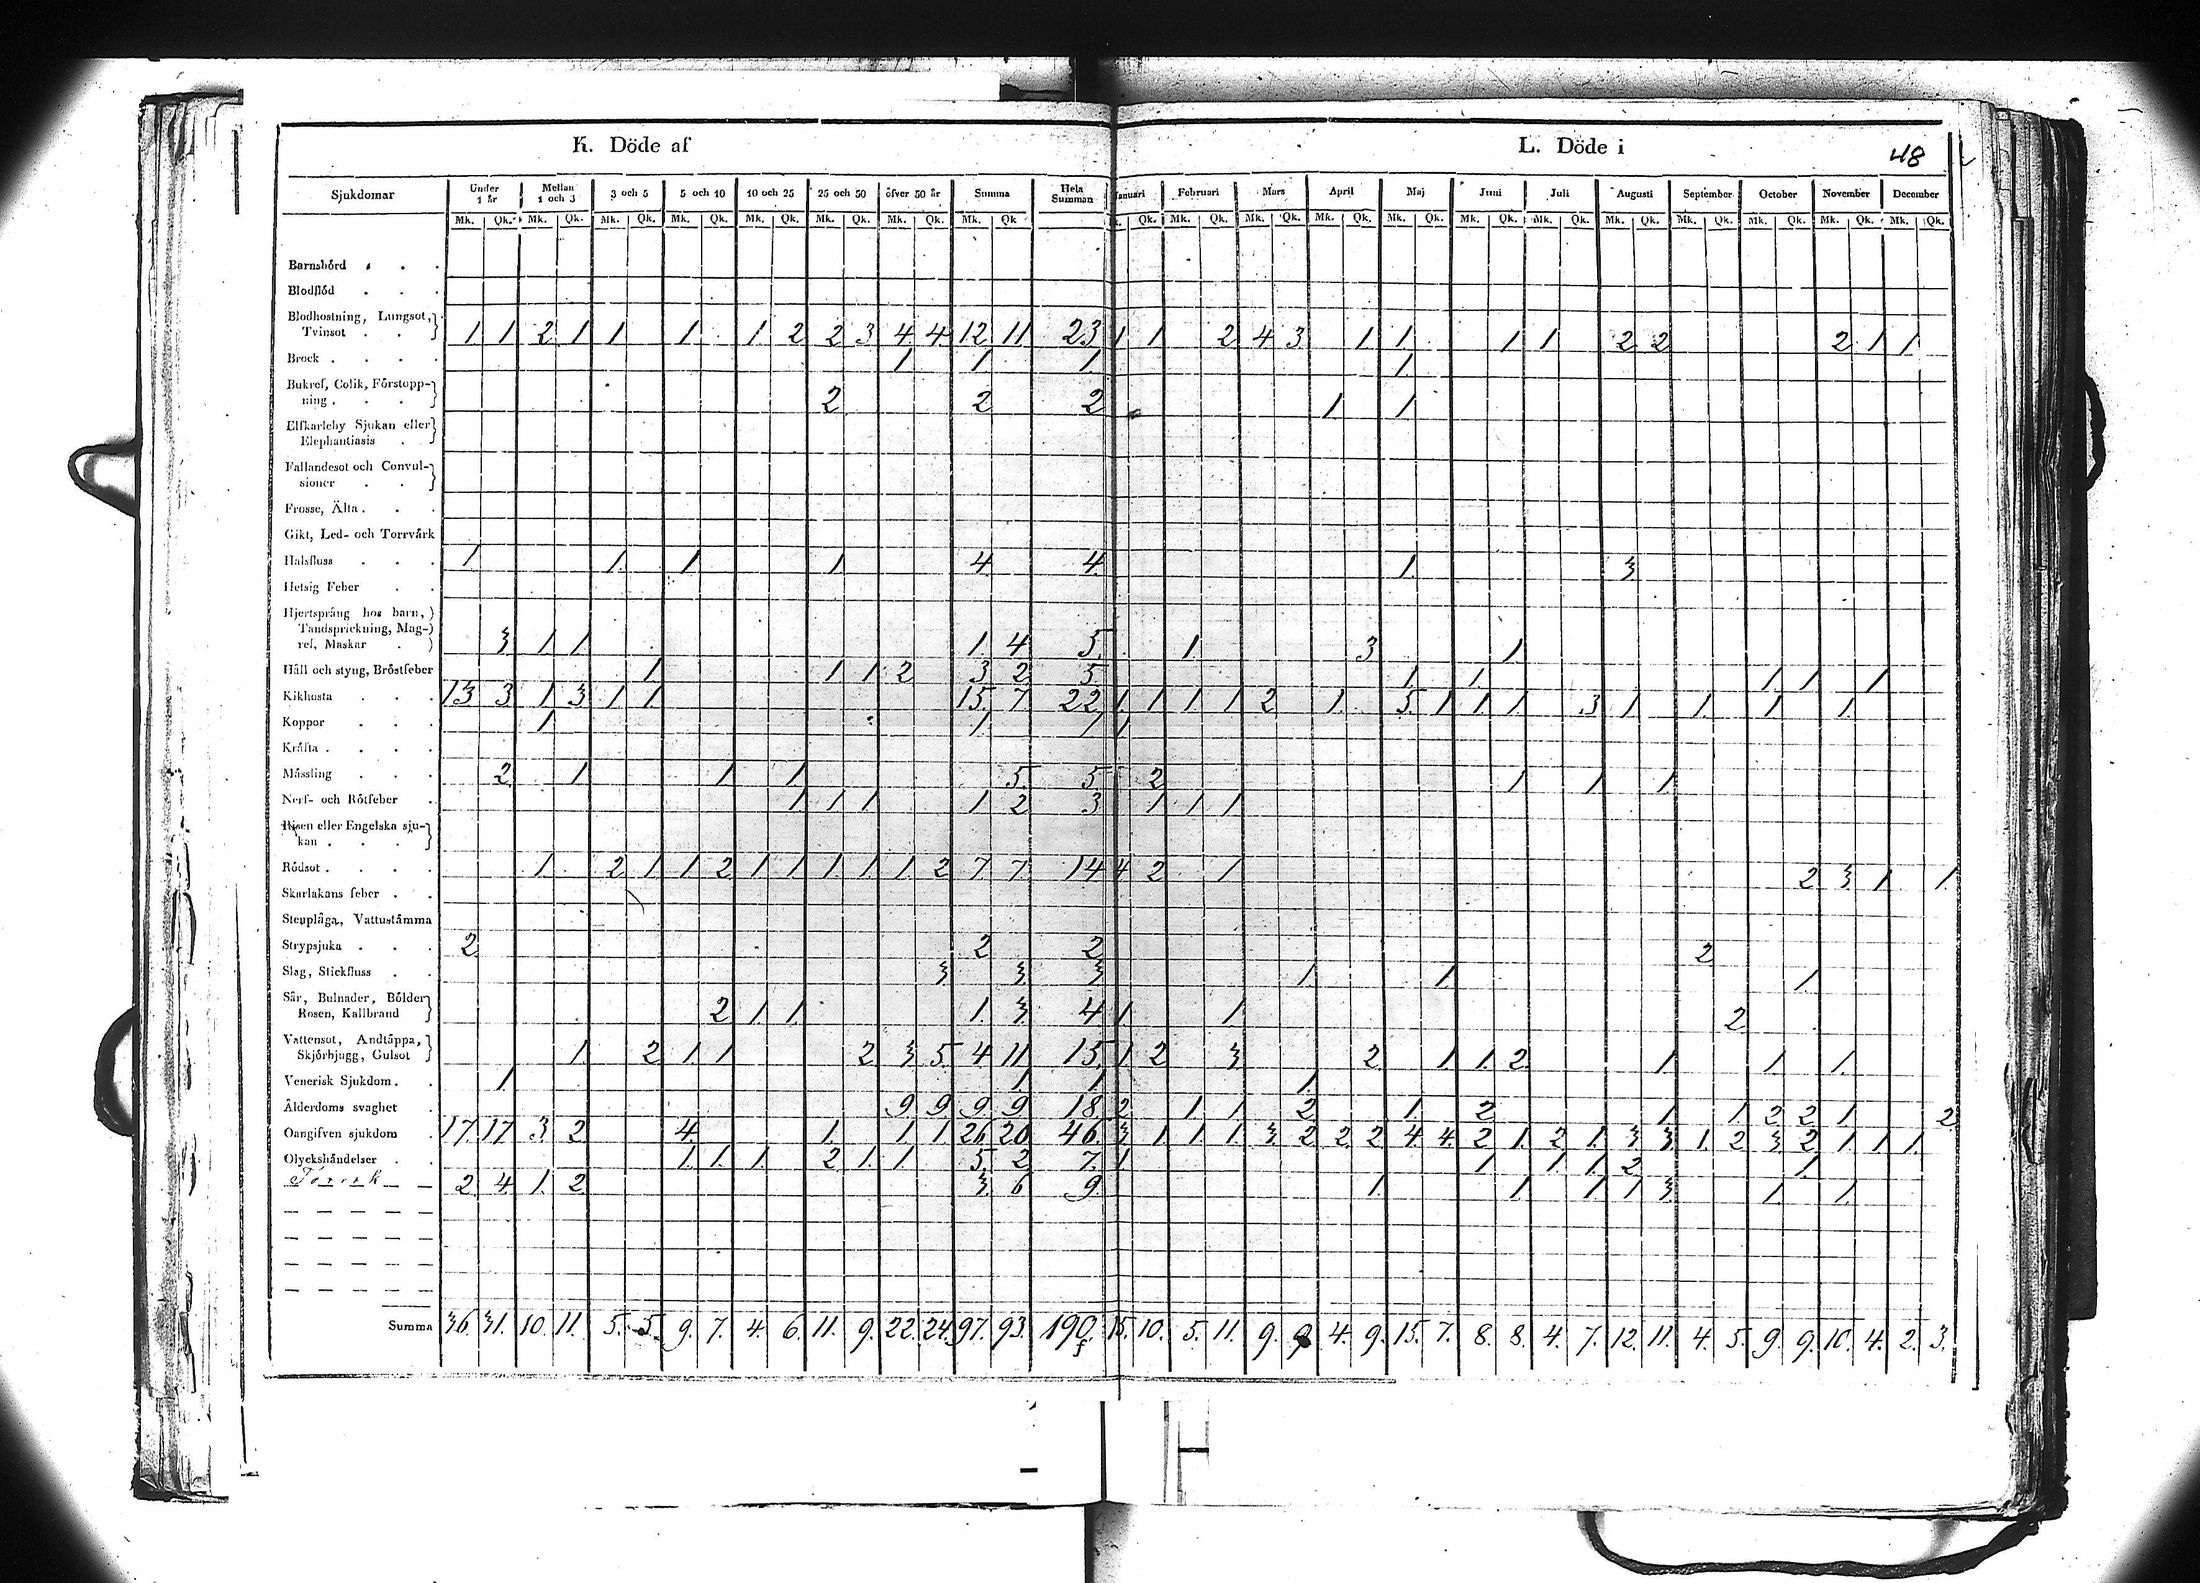 K. Döde af L. Döde i 48
Sjukdomar Under 1 år Mellan 1 och 3 3 och 5 5 och 10 10 och 25 25 och 50 öfver 50 år Summa Hela Summan Januari Februari Mars April Maj Juni Juli Augusti September October November December
Mk. Qk. Mk. Qk. Mk. Qk. Mk. Qk. Mk. Qk. Mk. Qk. Mk. Qk. Mk. Qk. k. Qk. Mk. Qk. Mk. Qk. Mk. Qk. Mk. Qk. Mk. Qk. Mk. Qk. Mk. Qk. Mk. Qk. Mk. Qk. Mk. Qk. Mk. Qk.
Barnsbörd
Blodflöd
Blodhostning, Lungsot,
Tvinsot 1 1 2 1 1 1 1 2 2 3 4 4 12 11 23 1 1 2 4 3 1 1 1 1 2 2 2 1 1
Brock 1 1 1 1
Bukref, Colik, Förstopp-
ning 2 2 2 1 1
Elfkarleby Sjukan eller
Elephantiasis
Fallandesot och Convul-
sioner
Frosse, Älta
Gikt, Led- och Torrvärk
Halsfluss 1 1 1 1 4 4 1 3
Hetsig Feber
Hjertsprång hos barn,
Tandsprickning, Mag-
ref, Maskar 3 1 1 1 4 5 1 3 1
Håll och styng, Bröstfeber 1 1 1 2 3 2 5 1 1 1 1 1
Kikhosta 13 3 1 3 1 1 15 7 22 1 1 1 1 2 1 5 1 1 1 3 1 1 1 1
Koppor 1 1 1 1
Kräfta
Mässling 2 1 1 1 5 5 2 1 1 1
Nerf- och Rötfeber 1 1 1 1 2 3 1 1 1
Risen eller Engelska sju-
kan
Rödsot 1 2 1 1 2 1 1 1 1 1 2 7 7 14 4 2 1 2 3 1 1
Skarlakans feber
Stenplåga, Vattustämma
Strypsjuka 2 2 2 2
Slag, Stickfluss 3 3 3 1 1 1
Sår, Bulnader, Bölder
Rosen, Kallbrand 2 1 1 1 3 4 1 1 2
Vattensot, Andtäppa,
Skjörbjugg, Gulsot 1 2 1 1 2 3 5 4 11 15 1 2 3 2 1 1 2 1 1 1
Venerisk Sjukdom 1 1 1 1
Ålderdoms svaghet 9 9 9 9 18 2 1 1 2 1 2 1 1 2 2 1 2
Oangifven sjukdom 17 17 3 2 4 1 1 1 26 20 46 3 1 1 1 3 2 2 2 4 4 2 1 2 1 3 3 1 2 3 2 1 1 1
Olyckshändelser 1 1 1 2 1 1 5 2 7 1 1 1 1 2 1
2 4 1 2 3 6 9 1 1 1 1 3 1 1
Summa 36. 31. 10. 11. 5. 5. 9. 7. 4. 6. 11. 9. 22. 24. 97. 93. 190 15. 10. 5. 11. 9. 9 4. 9. 15. 7. 8. 8. 4. 7. 12. 11. 4. 5. 9. 9. 10. 4. 2. 3.